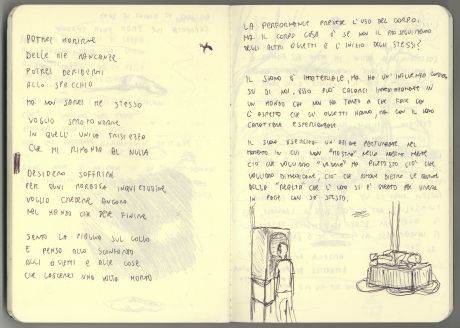 POTREI MORIRNE
DELLE MIE MANCANZE
POTREI DERIDERMI
ALLO SPECCHIO
MA NON SAREI ME STESSO
VOGLIO
IN QUELL' UNICA TRISTEZZA
CHE MI RIPORTA AL NULLA
DESIDERO SOFFRIRE
PER OGNI MORBOSA INQUIETUDINE
VOGLIO CREDERE ANCORA
NEL MONDO CHE DEVE FINIRE
SENTO LA PIOGGIA SUL COLLO
E PENSO ALLO SCONFORTO
AGLI OGGETTI E ALLE COSE
CHE LASCEREI UNA VOLTA MORTO
LA PERFORMANCE PREVEDE L'USO DEL CORPO,
MA IL CORPO COSA È SE NON IL PROSEGUIMENTO
DEGLI ALTRI OGGETTI E L'INIZIO DEGLI STESSI?
IL SUONO È IMMATERIALE, MA HA UN'INFLUENZA
SU DI NOI, ESSO PUÒ CALARCI IN
UN MONDO CHE NON HA TANTO A CHE FARE CON
L'ASPETTO CHE GLI OGGETTI HANNO, MA CON IL LORO
CARATTERE ESPERIENZIALE
IL SUONO ESERCITA UN' PERTURBANTE NEL
MOMENTO IN CUI NON "MOSTRA" NELLA NOSTRA MENTE
CIÒ CHE VOGLIAMO "VEDERE" MA PIUTTOSTO CIÒ CHE
VOGLIAMO DIMENTICARE, CIÒ CHE RIMANE DIETRO LE
DELLA "REALTÀ" CHE L'UOMO SI È CREATO PER VIVERE
IN PACE CON SE STESSO.